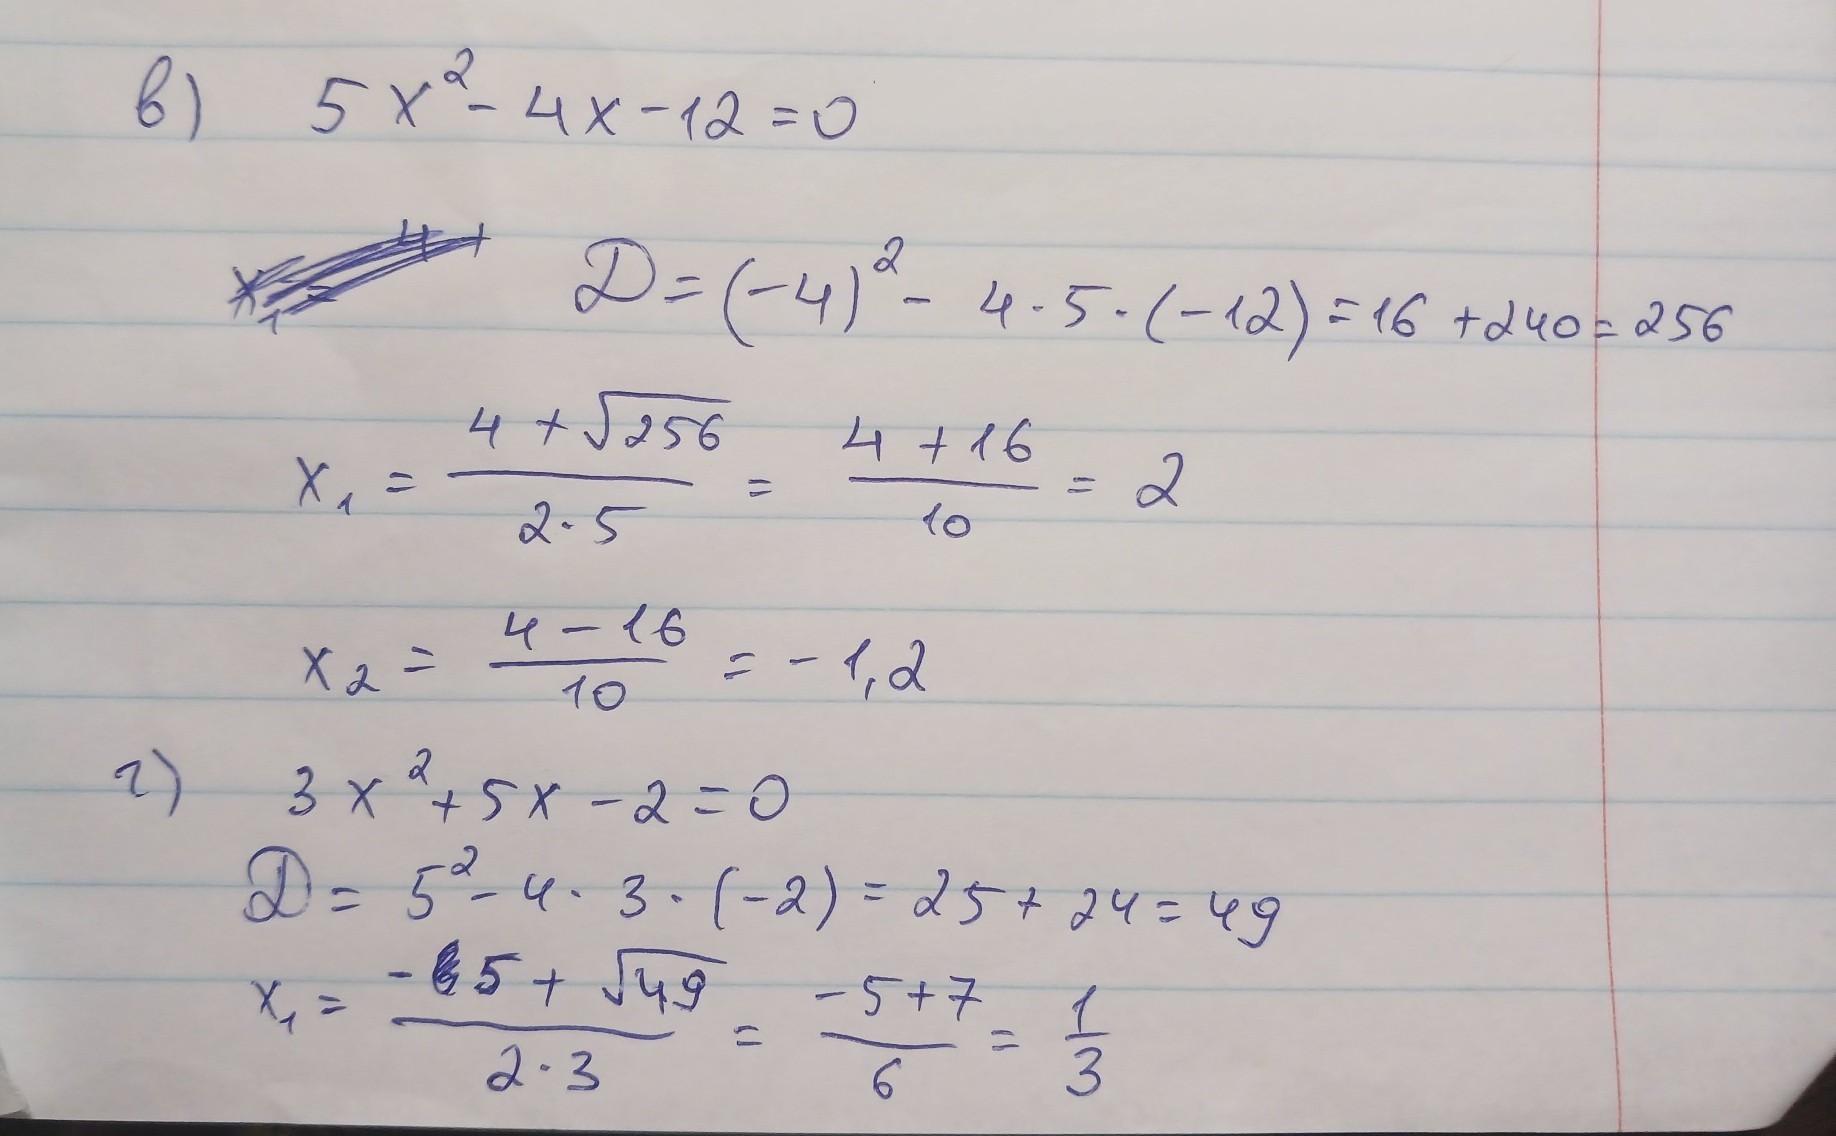 в) 5x² - 4x - 12 = 0
D = (-4)² - 4 · 5 · (-12) = 16 + 240 = 256
x₁ = (4 + √256)/(2 · 5) = (4 + 16)/10 = 2
x₂ = (4 - 16)/10 = -1,2
г) 3x² + 5x - 2 = 0
D = 5² - 4 · 3 · (-2) = 25 + 24 = 49
x₁ = (-5 + √49)/(2 · 3) = (-5 + 7)/6 = 1/3